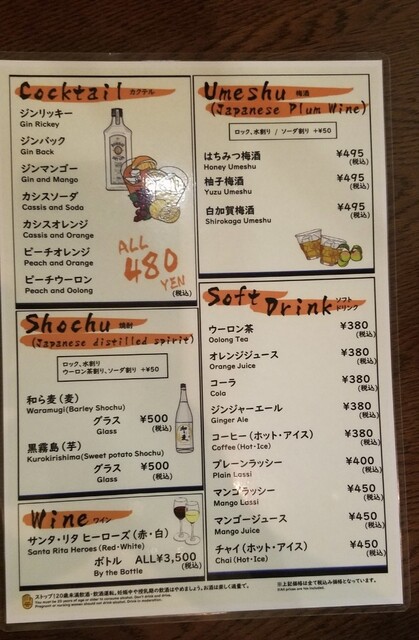 Cocktail カクテル
ジンリッキー
Gin Rickey
ジンバック
Gin Back
ジンマンゴー
Gin and Mango
カシスソーダ
Cassis and Soda
カシスオレンジ
Cassis and Orange
ピーチオレンジ
Peach and Orange
ピーチウーロン
Peach and Oolong
ALL
480
YEN
(税込)
Shochu 焼酎
(Japanese distilled spirit)
ロック、水割り
ウーロン茶割り、ソーダ割り +¥50
和ら麦(麦)
Waramugi(Barley Shochu)
グラス ¥500
Glass (税込)
黒霧島(芋)
Kurokirishima(Sweet potato Shochu)
グラス ¥500
Glass (税込)
Wine ワイン
サンタ・リタ ヒーローズ(赤・白)
Santa Rita Heroes(Red・White)
ボトル ALL¥3,500
By the Bottle (税込)
Umeshu 梅酒
(Japanese Plum Wine)
ロック、水割り / ソーダ割り +¥50
はちみつ梅酒 ¥495
Honey Umeshu (税込)
柚子梅酒 ¥495
Yuzu Umeshu (税込)
白加賀梅酒 ¥495
Shirokaga Umeshu (税込)
Soft Drink ソフトドリンク
ウーロン茶 ¥380
Oolong Tea (税込)
オレンジジュース ¥380
Orange Juice (税込)
コーラ ¥380
Cola (税込)
ジンジャーエール ¥380
Ginger Ale (税込)
コーヒー(ホット・アイス) ¥380
Coffee(Hot・Ice) (税込)
プレーンラッシー ¥400
Plain Lassi (税込)
マンゴラッシー ¥450
Mango Lassi (税込)
マンゴージュース ¥450
Mango Juice (税込)
チャイ(ホット・アイス) ¥450
Chai(Hot・Ice) (税込)
ストップ!20歳未満飲酒・飲酒運転。妊娠中や授乳期の飲酒はやめましょう。お酒は楽しく適量で。
※上記価格は全て税込み価格となっています。